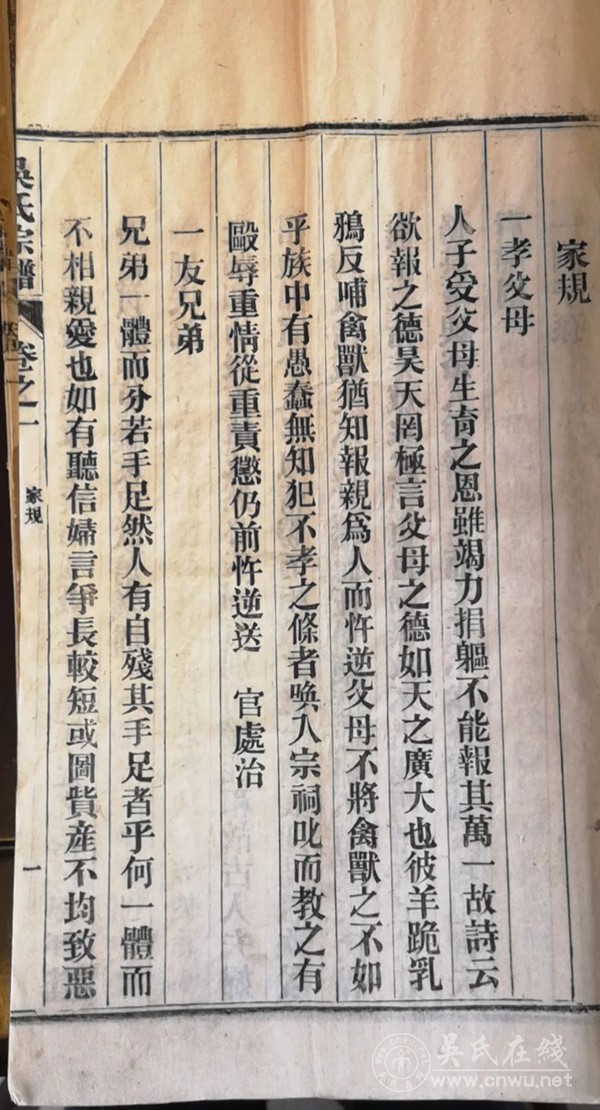 家規
一孝父母
人子受父母生育之恩雖竭力捐軀不能報其萬一故詩云
欲報之德昊天罔極言父母之德如天之廣大也彼羊跪乳
鴉反哺禽獸猶知報親爲人而忤逆父母不將禽獸之不如
乎族中有愚蠢無知犯不孝之條者喚入宗祠叱而教之有
毆辱重情從重責懲仍前忤逆送　官處治
一友兄弟
兄弟一體而分若手足然人有自殘其手足者乎何一體而
不相親愛也如有聽信婦言爭長較短或圖貲産不均致惡
吳氏宗譜
卷之一
家規
一
吳氏在綫
www.cnwu.net